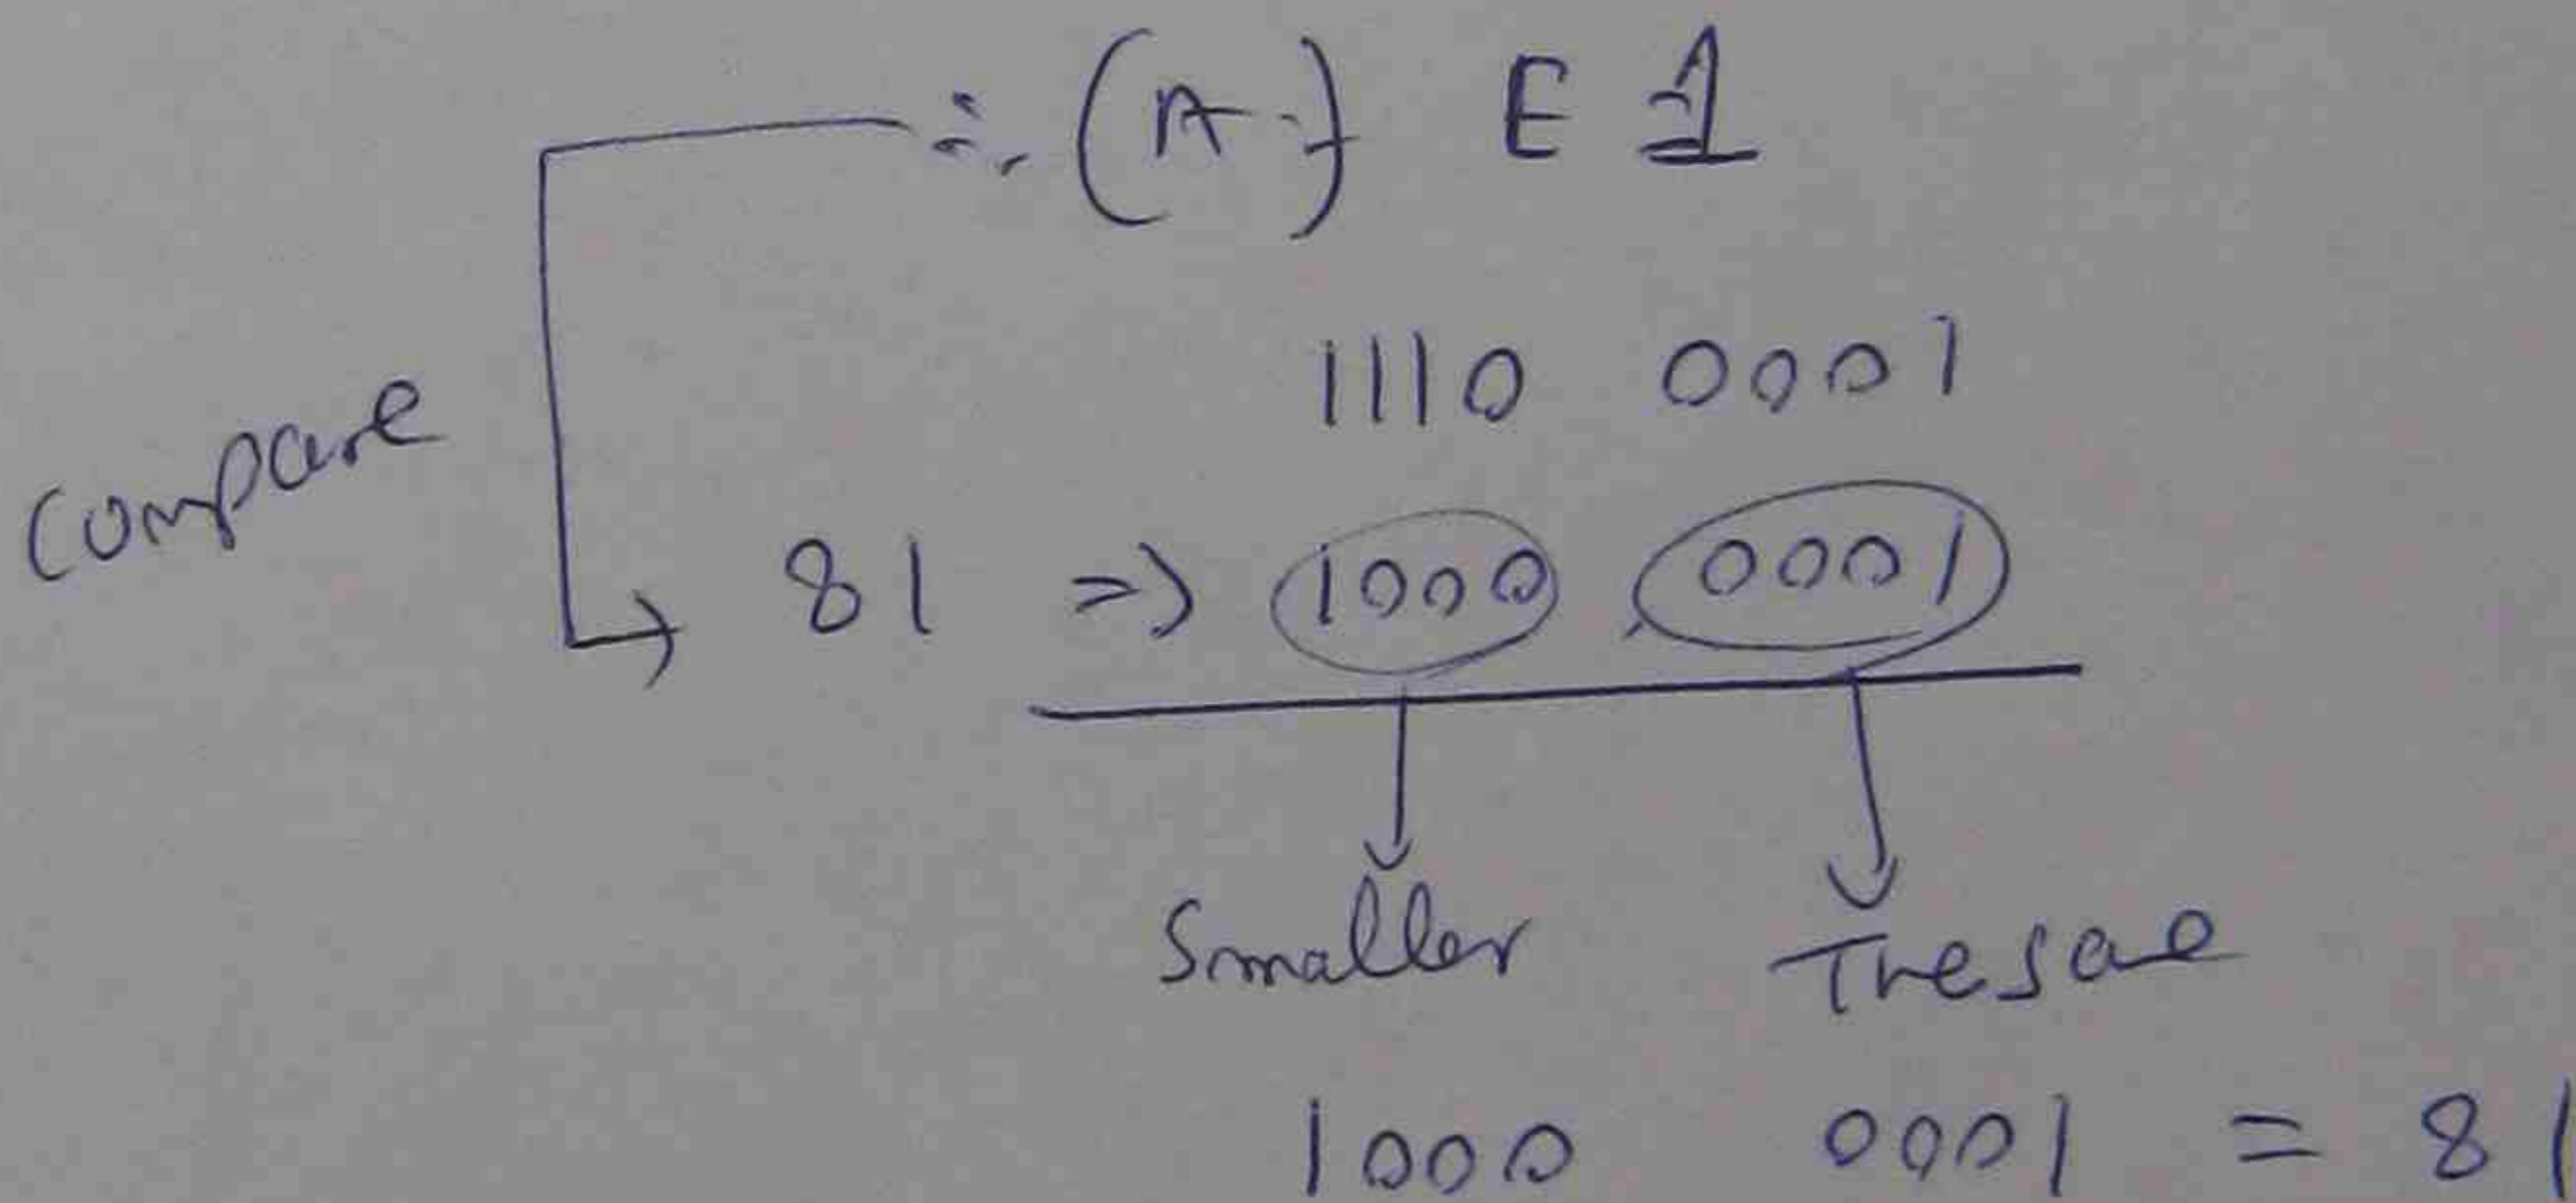 ∴ (A) E 1
1110 0001
Compare
81 => 1000 0001
Smaller
The sae
1000 0001 = 81